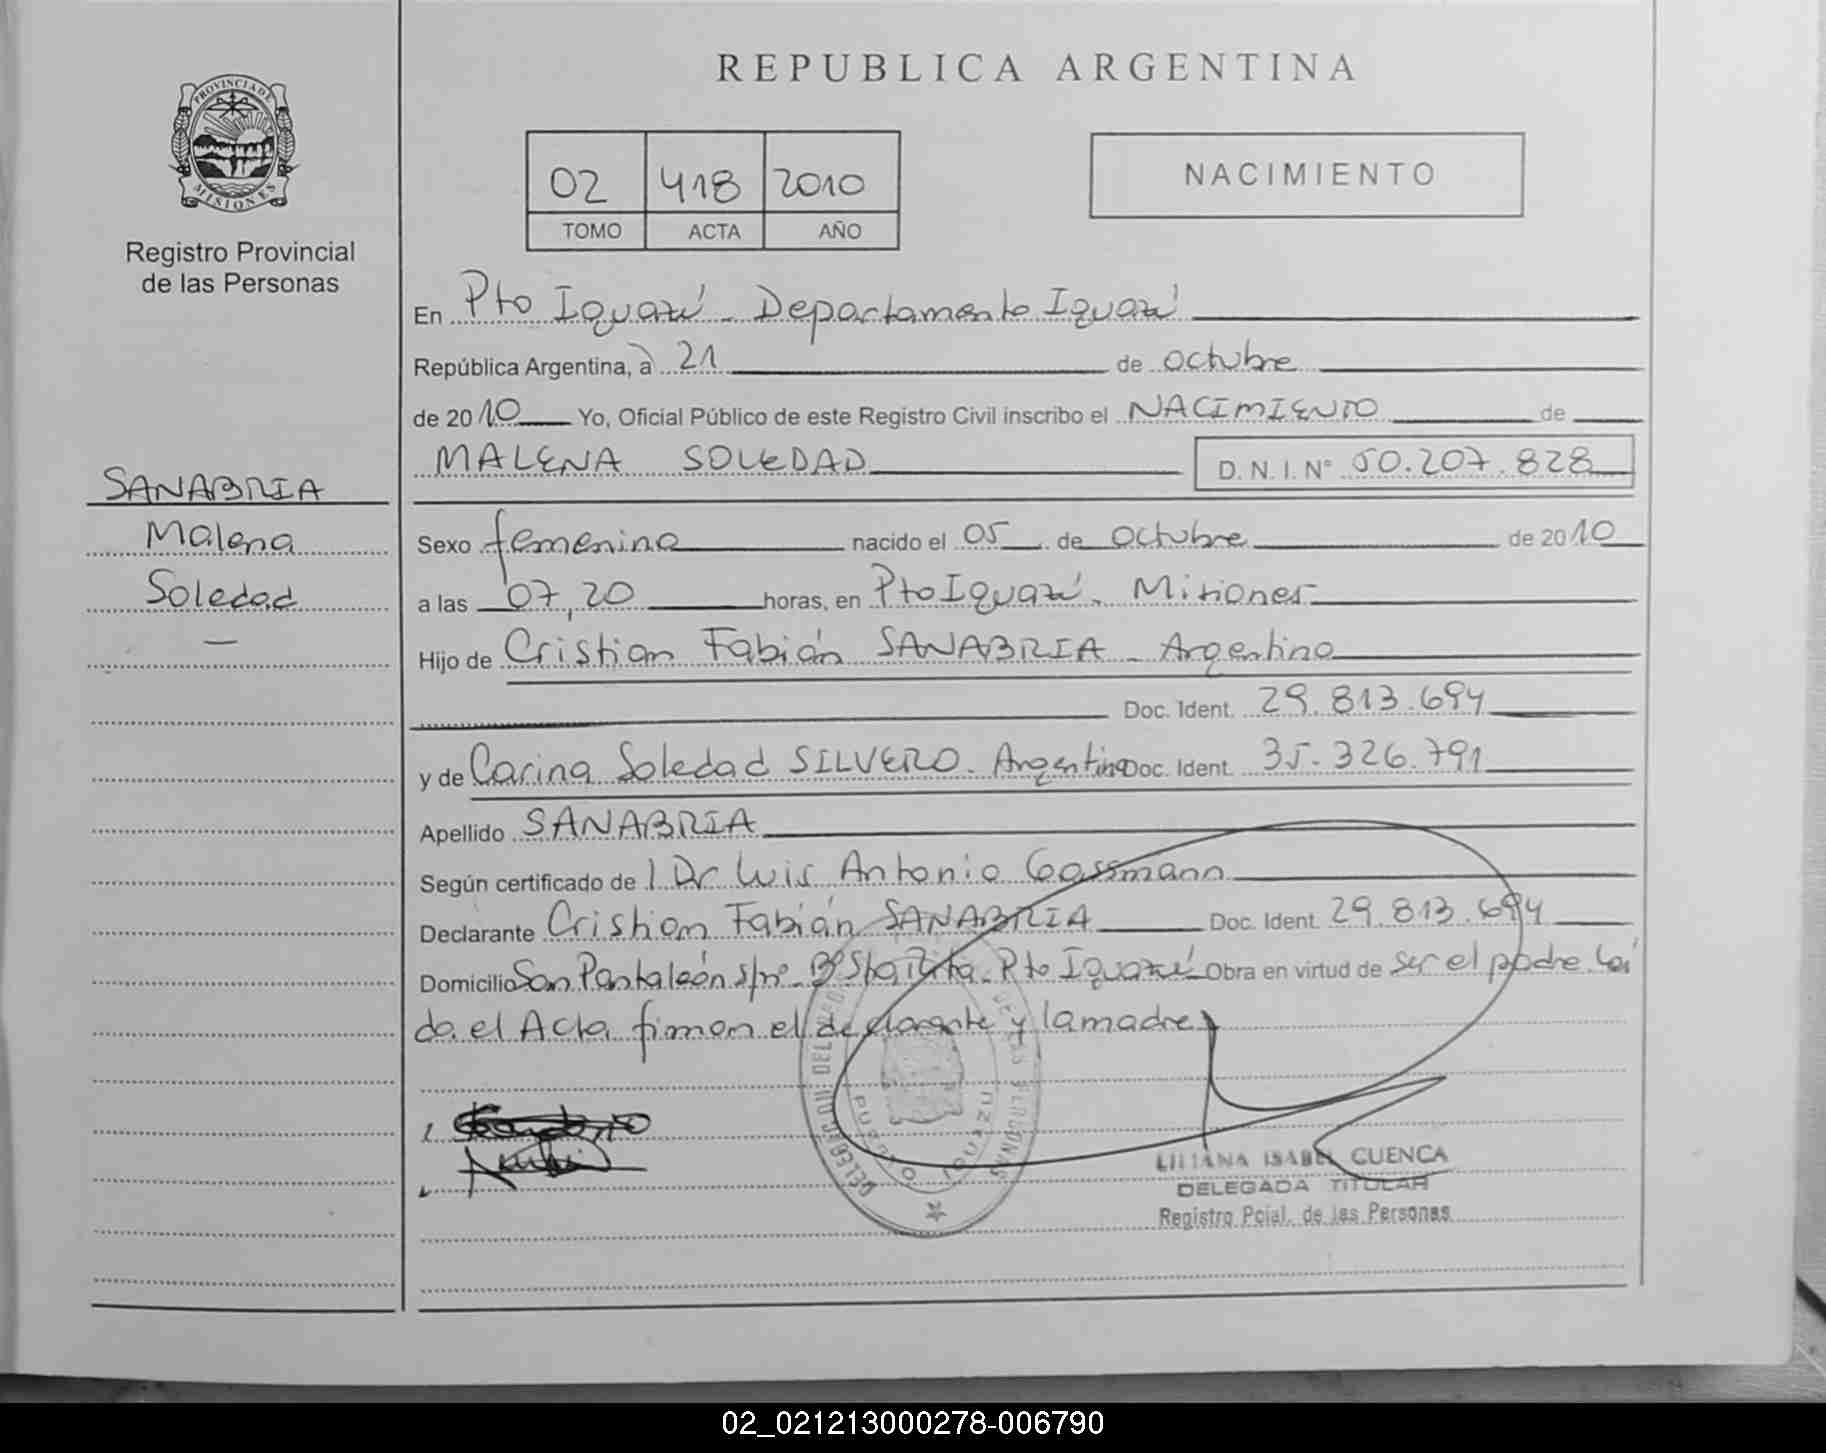 PROVINCIA DE
MISIONES
Registro Provincial
de las Personas
SANABRIA
Malena
Soledad
—
REPUBLICA ARGENTINA
02 418 2010
TOMO ACTA AÑO
NACIMIENTO
En Pto Iguazú - Departamento Iguazú
República Argentina, a 21 de octubre
de 2010 Yo, Oficial Público de este Registro Civil inscribo el NACIMIENTO de
MALENA SOLEDAD D.N.I. Nº 50.207.828
Sexo femenina nacido el 05 de octubre de 2010
a las 07,20 horas, en Pto Iguazú - Misiones
Hijo de Cristian Fabián SANABRIA - Argentino
Doc. Ident. 29.813.694
y de Carina Soledad SILVERO - Argentina Doc. Ident. 35.326.791
Apellido SANABRIA
Según certificado de l Dr Luis Antonio Gassmann
Declarante Cristian Fabián SANABRIA Doc. Ident. 29.813.694
Domicilio San Pantaleón s/nº - Bº Sta Rita - Pto Iguazú Obra en virtud de ser el padre. Leí
da el Acta firman el declarante y la madre
DELEGACION DEL REG. DE LAS PERSONAS
PUERTO IGUAZU
LILIANA ISABEL CUENCA
DELEGADA TITULAR
Registro Pcial. de las Personas
02_021213000278-006790